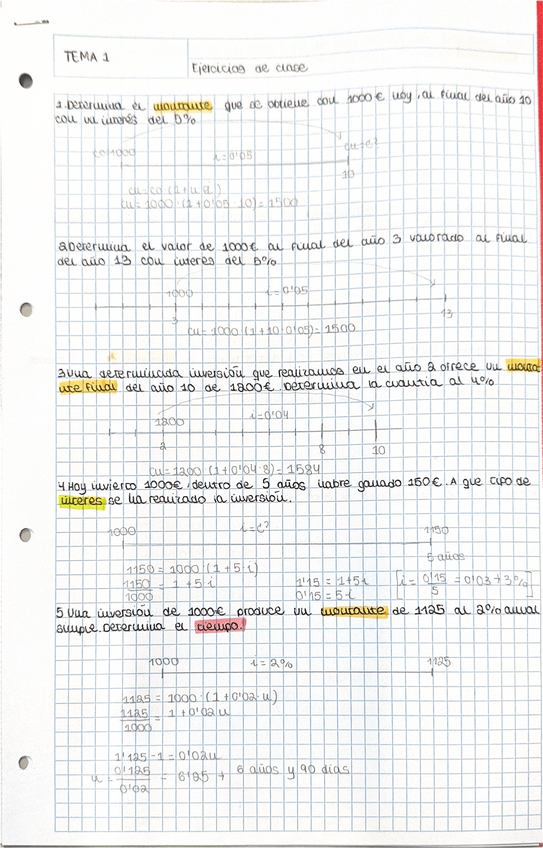 TEMA 1
Ejercicios de clase
1. Determina el montante que se obtiene con 1000€ hoy, al final del año 10
con un interés del 5%
co=1000 i=0'05 cn=¿?
10
cn=co(1+n·i)
cn=1000·(1+0'05·10)=1500
2. Determina el valor de 1000€ al final del año 3 valorado al final
del año 13 con interes del 5%
1000 i=0'05
3 13
cn=1000(1+10·0'05)=1500
3. Una determinada inversión que realizamos en el año 2 ofrece un monta
nte final del año 10 de 1200€. Determina la cuantía al 4%
1200 i=0'04
2 8 10
cn=1200(1+0'04·8)=1584
4. Hoy invierto 1000€, dentro de 5 años habre ganado 150€. A que tipo de
interes se ha realizado la inversión.
1000 i=¿? 1150
5 años
1150=1000·(1+5·i)
1150/1000=1+5·i 1'15=1+5·i [i=0'15/5=0'03→3%]
0'15=5·i
5. Una inversión de 1000€ produce un montante de 1125 al 2% anual
simple. Determina el tiempo.
1000 i=2% 1125
1125=1000·(1+0'02·n)
1125/1000=1+0'02n
1'125-1=0'02n
n=0'125/0'02=6'25→6 años y 90 días